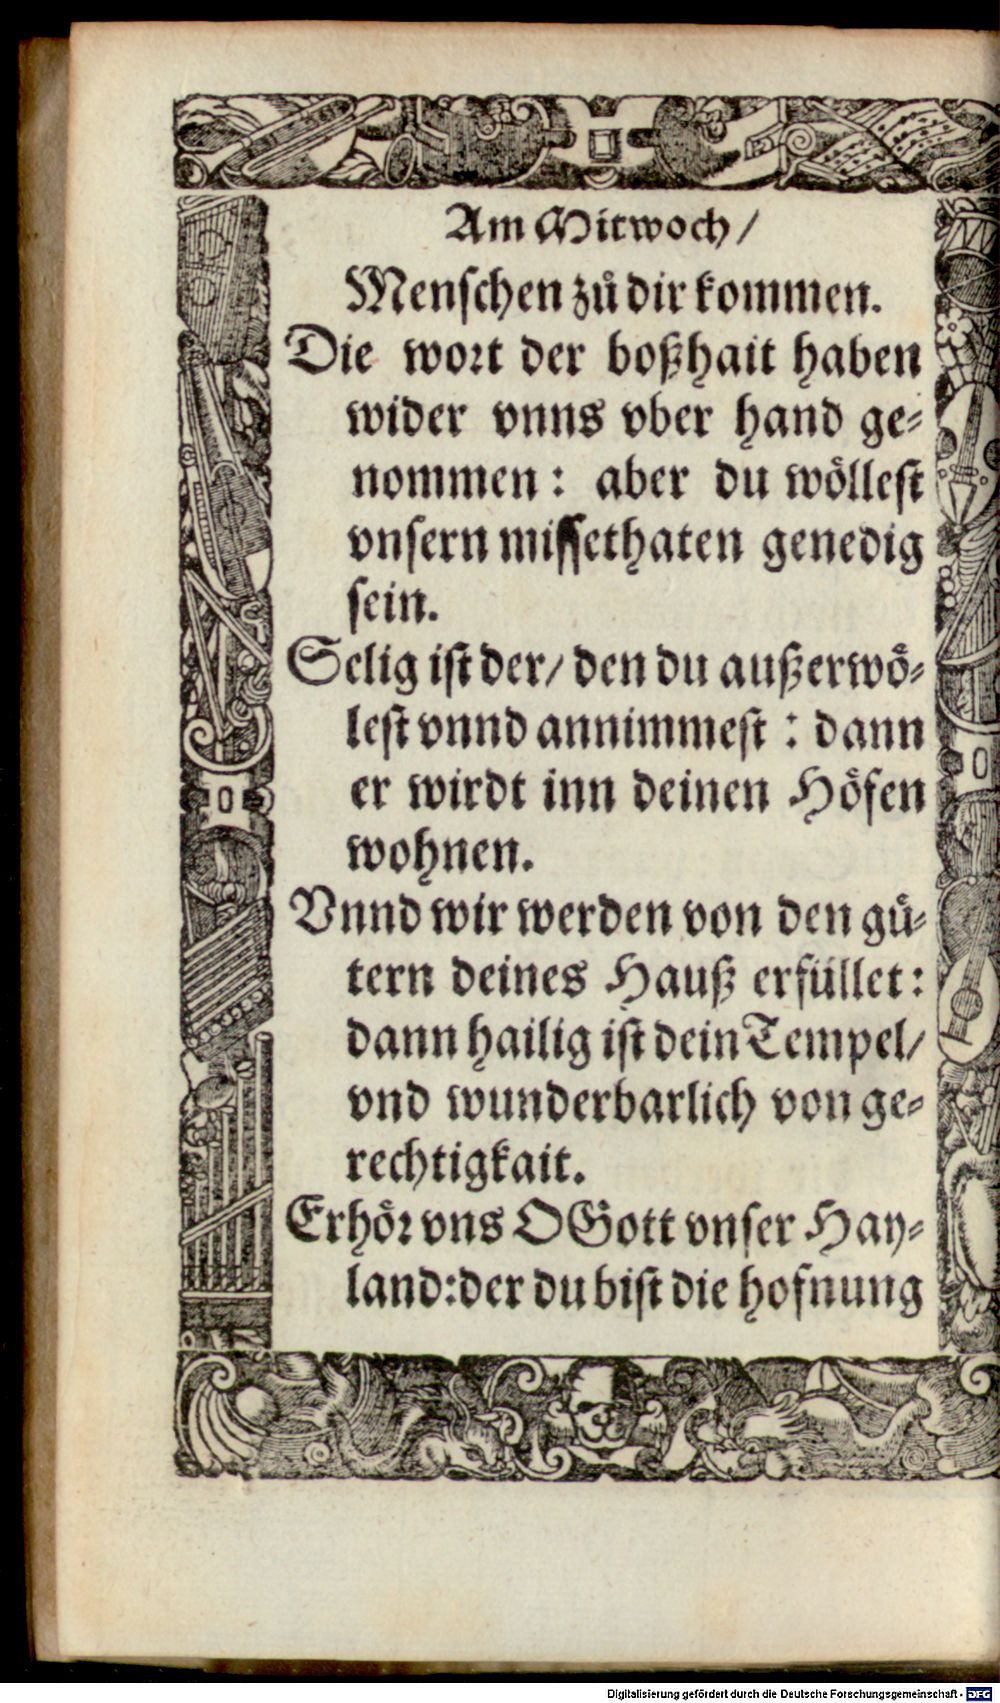 Am Mitwoch /
Menschen zů dir kommen.
Die wort der boßhait haben
wider vnns vber hand ge-
nommen : aber du wöllest
vnsern missethaten genedig
sein.
Selig ist der / den du außerwö-
lest vnnd annimmest : dann
er wirdt inn deinen Höfen
wohnen.
Vnnd wir werden von den gü-
tern deines Hauß erfüllet :
dann hailig ist dein Tempel /
vnd wunderbarlich von ge-
rechtigkait.
Erhör vns O Gott vnser Hay-
land : der du bist die hofnung
Digitalisierung gefördert durch die Deutsche Forschungsgemeinschaft - DFG